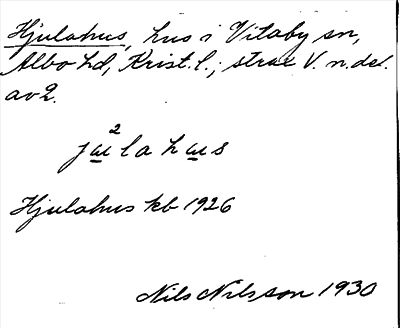 Hjulahus, hus i Vitaby sn,
Albo hd, Krist. l.; strax V. n. del.
av 2.
ju²lahus
Hjulahus kb 1926
Nils Nilsson 1930